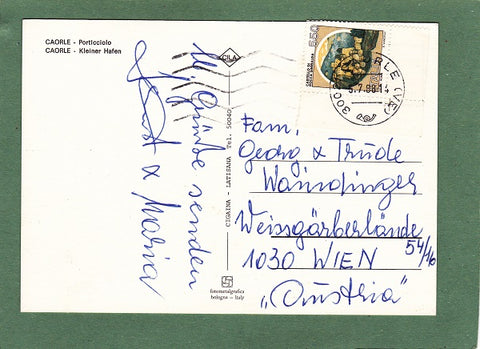 CAORLE - Porticciolo
CAORLE - Kleiner Hafen
CILA
550
CAORLE (VE)
5.7.88.14
Grüße senden
& Maria
Fam.
Georg & Trude
Wanninger
Weissgärberlände
54/16
1030 WIEN
"Austria"
CIGAINA - LATISANA Tel. 50040
fotometalgrafica
bologna - italy